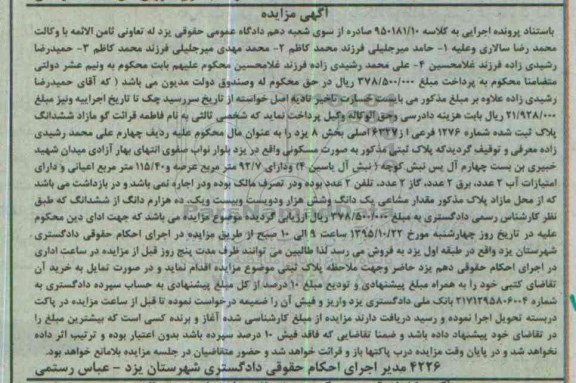 آگهی مزایده
باستناد پرونده اجرایی به کلاسه ۹۵۰۱۸۱/۱۰ صادره از سوی شعبه دهم دادگاه عمومی حقوقی یزد له تعاونی ثامن الائمه با وکالت
محمد رضا سالاری وعلیه ۱- حامد میرجلیلی فرزند محمد کاظم ۲- محمد مهدی میرجلیلی فرزند محمد کاظم ۳- حمیدرضا
رشیدی زاده فرزند غلامحسین ۴- علی محمد رشیدی زاده فرزند غلامحسین محکوم علیهم بابت محکوم به ونیم عشر دولتی
متضامنا محکوم به پرداخت مبلغ ۳۷۸/۵۰۰/۰۰۰ ریال در حق محکوم له وصندوق دولت مدیون می باشد ( که آقای حمیدرضا
رشیدی زاده علاوه بر مبلغ مذکور می بایست خسارت تاخیر تادیه اصل خواسته از تاریخ سررسید چک تا تاریخ اجراییه ونیز مبلغ
۲۱/۹۲۸/۰۰۰ ریال بابت هزینه دادرسی وحق الوکاله وکیل پرداخت نماید که شخصی ثالثی به نام فاطمه قرائت گو مازاد ششدانگ
پلاک ثبت شده شماره ۱۲۷۶ فرعی از ۶۳۲۷ اصلی بخش ۸ یزد را به عنوان مال محکوم علیه ردیف چهارم علی محمد رشیدی
زاده معرفی و توقیف گردیدکه پلاک ثبتی مذکور به صورت مسکونی واقع در یزد بلوار نواب صفوی انتهای بهار آزادی میدان شهید
خبیری بن بست چهارم آل یس نبش کوچه ( نبش آل یاسین ۴) ودارای ۹۲/۷ متر مربع عرصه و۱۱۵/۴۰ متر مربع اعیانی و دارای
امتیازات آب ۲ عدد، برق ۲ عدد، گاز ۲ عدد، تلفن ۲ عدد بوده ودر تصرف مالک بوده ودر اجاره نمی باشد و در بازداشت می باشد
که از محل مازاد پلاک مذکور مقدار مشاعی یک دانگ وشش هزار ودویست وبیست ویک، ده هزارم دانگ از ششدانگ که طبق
نظر کارشناس رسمی دادگستری به مبلغ ۳۷۸/۵۰۰/۰۰۰ ریال ارزیابی گردیده موضوع مزایده می باشد که جهت ادای دین محکوم
علیه در تاریخ روز چهارشنبه مورخ ۱۳۹۵/۱۰/۲۲ ساعت ۹ الی ۱۰ صبح از طریق مزایده در اجرای احکام حقوقی دادگستری
شهرستان یزد واقع در طبقه اول یزد به فروش می رسد لذا طالبین می توانند ظرف مدت پنج روز قبل از مزایده در ساعت اداری
در اجرای احکام حقوقی دهم یزد حاضر وجهت ملاحظه پلاک ثبتی موضوع مزایده اقدام نماید و در صورت تمایل به خرید آن
تقاضای کتبی خود را به همراه مبلغ پیشنهادی و تودیع مبلغ ۱۰ درصد از کل مبلغ پیشنهادی به حساب سپرده دادگستری به
شماره ۲۱۷۱۲۹۵۸۰۶۰۰۴ بانک ملی دادگستری یزد واریز و فیش آن را ضمیمه درخواست نموده تا قبل از ساعت مزایده در پاکت
دربسته تحویل اجرا نموده و رسید دریافت دارند مزایده از مبلغ کارشناسی شده آغاز و برنده کسی است که بیشترین مبلغ را
در تقاضای خود پیشنهاد داده باشد و ضمنا تقاضایی که فاقد فیش ۱۰ درصد سپرده باشد بدون اعتبار بوده و ترتیب اثر داده
نخواهد شد و در پایان وقت مزایده درب پاکتها باز و قرائت خواهد شد و حضور متقاضیان در جلسه مزایده بلامانع خواهد بود.
۴۲۲۶ مدیر اجرای احکام حقوقی دادگستری شهرستان یزد - عباس رستمی